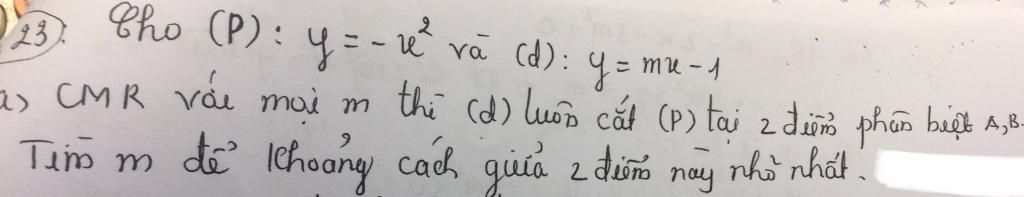 23): Cho (P): y = -x² và (d): y = mx - 1
a) CMR với mọi m thì (d) luôn cắt (P) tại 2 điểm phân biệt A, B.
Tìm m để khoảng cách giữa 2 điểm này nhỏ nhất.